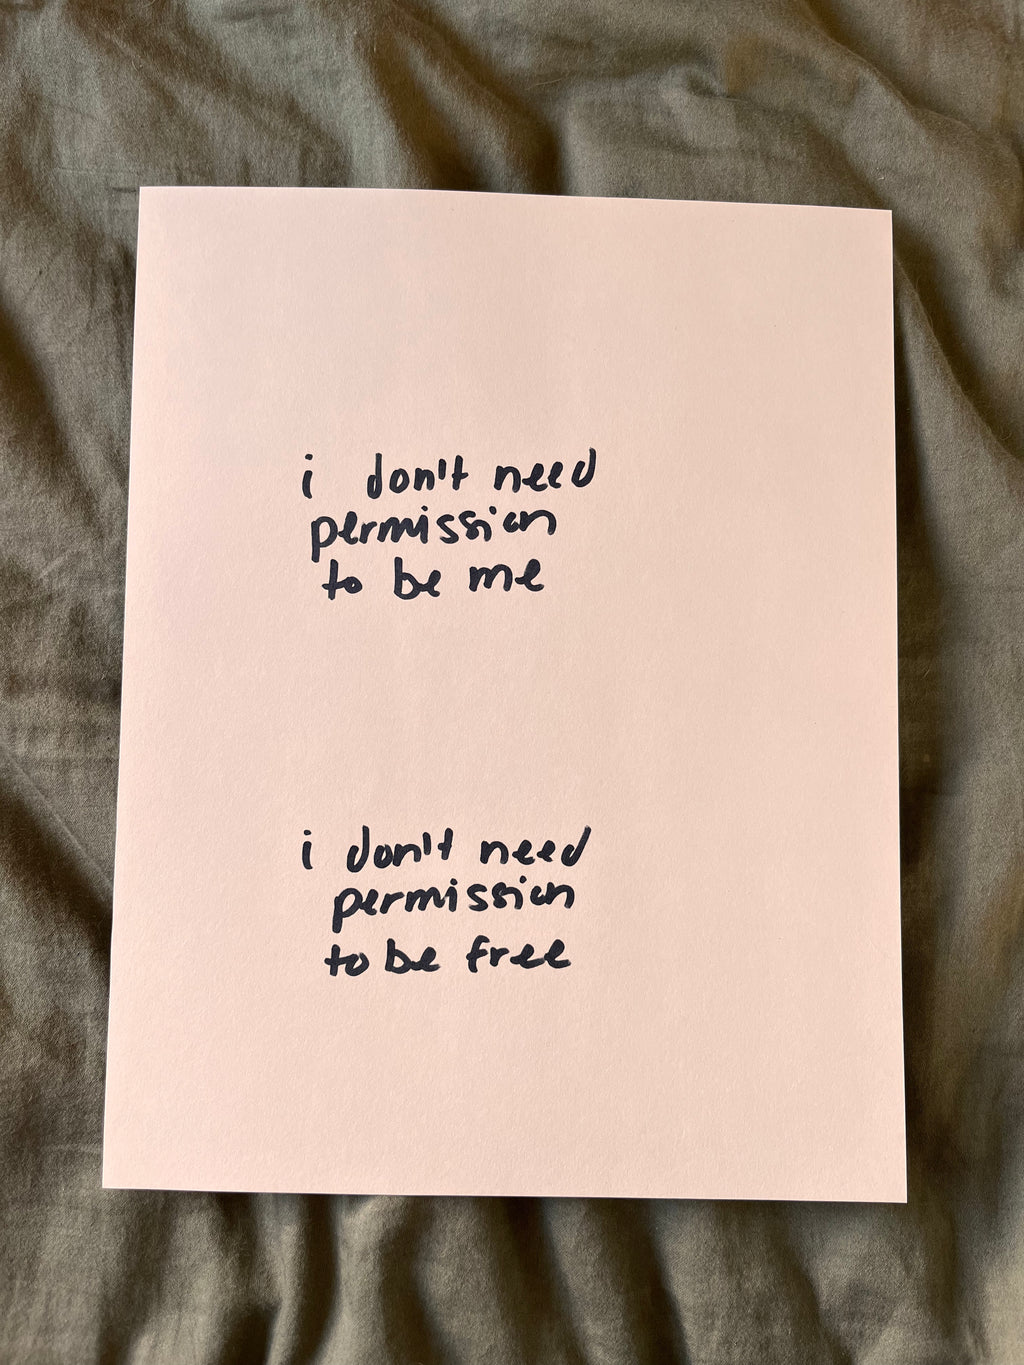 i don't need
permission
to be me
i don't need
permission
to be free